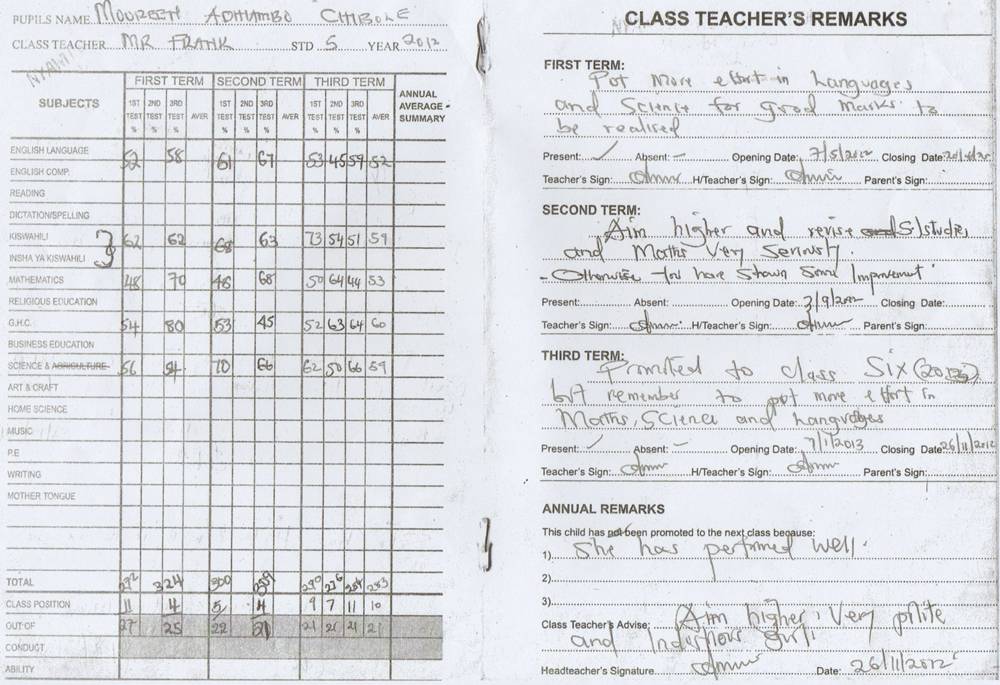 PUPILS NAME MOUREEN ADHIAMBO CHIBOLE
CLASS TEACHER MR FRANK STD 5 YEAR 2012
SUBJECTS FIRST TERM SECOND TERM THIRD TERM ANNUAL AVERAGE - SUMMARY
1ST TEST % 2ND TEST % 3RD TEST % AVER 1ST TEST % 2ND TEST % 3RD TEST % AVER 1ST TEST % 2ND TEST % 3RD TEST % AVER
ENGLISH LANGUAGE 52 58 61 67 53 45 59 52
ENGLISH COMP.
READING
DICTATION/SPELLING
KISWAHILI 62 62 68 63 73 54 51 59
INSHA YA KISWAHILI
MATHEMATICS 48 70 48 68 50 64 44 53
RELIGIOUS EDUCATION
G.H.C. 54 80 53 45 52 63 64 60
BUSINESS EDUCATION
SCIENCE & AGRICULTURE 56 54 70 66 62 50 66 59
ART & CRAFT
HOME SCIENCE
MUSIC
P.E
WRITING
MOTHER TONGUE
TOTAL 324 300 290 276 284 283
CLASS POSITION 11 4 5 4 9 7 11 10
OUT OF 27 25 22 21 21 21 21 21
CONDUCT
ABILITY
CLASS TEACHER'S REMARKS
FIRST TERM:
Put More effort in Languages
and Science for good Marks to
be realised
Present: ✓ Absent: – Opening Date: 7/5/2012 Closing Date:
Teacher's Sign: H/Teacher's Sign: Parent's Sign:
SECOND TERM:
Aim higher and revise S/studies
and Maths Very Seriously.
- Otherwise You have Shown Some Improvement
Present: Absent: Opening Date: 3/9/2012 Closing Date:
Teacher's Sign: H/Teacher's Sign: Parent's Sign:
THIRD TERM:
Promoted to class Six (2013)
but remember to put more effort in
Maths, Science and Languages
Present: ✓ Absent: – Opening Date: 7/1/2013 Closing Date: 26/11/2012
Teacher's Sign: H/Teacher's Sign: Parent's Sign:
ANNUAL REMARKS
This child has not been promoted to the next class because:
1) She has performed well.
2)
3)
Class Teacher's Advise: Aim higher, Very polite
and Industrious girl.
Headteacher's Signature Date: 26/11/2012